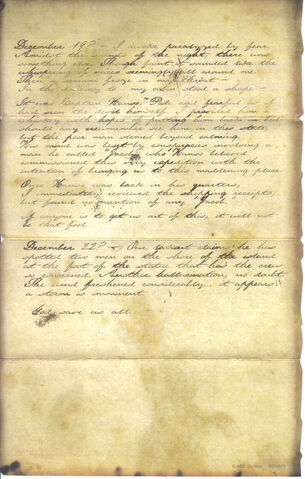 December 19? I awoke paralyzed by fear
Amidst the sounds of the night, there was
something else. Though faint it sounded like the
whispering of voices seemingly all around me
Then my blood froze in my throat
In the entryway to my cabin stood a shape
It was Captain Hanso. Pale and fearful as if
he'd seen the devil himself I
whiskey with hopes of putting him back in bed
should any crewmember see him in this state,
but the poor man seemed beyond calming
His mind was beset by conspiracies involving a
man he called "Jacob" who Hanso believed
commissioned this expedition with the
intention of bringing us to this maddening place
Once Hanso was back in his quarters,
I immediately reviewed the shipping receipts,
but found no mention of any "Jacob"
If anyone is to get us out of this, it will not
be that fool
December 22? One lookout claims he has
spotted two men on the shore of the island
at the foot of the statue that has the crew
so concerned. Another hallucination, no doubt
The wind freshened considerably it appears
a storm is imminent
God save us all
© ABC Studios